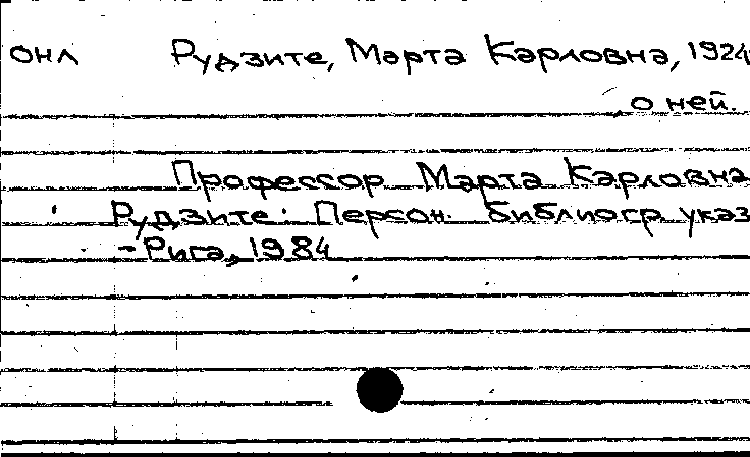 ОНЛ Рудзите, Марта Карловна, 1924
о ней.
Профессор Марта Карловна
Рудзите: Персон. библиогр. указ
- Рига, 1984